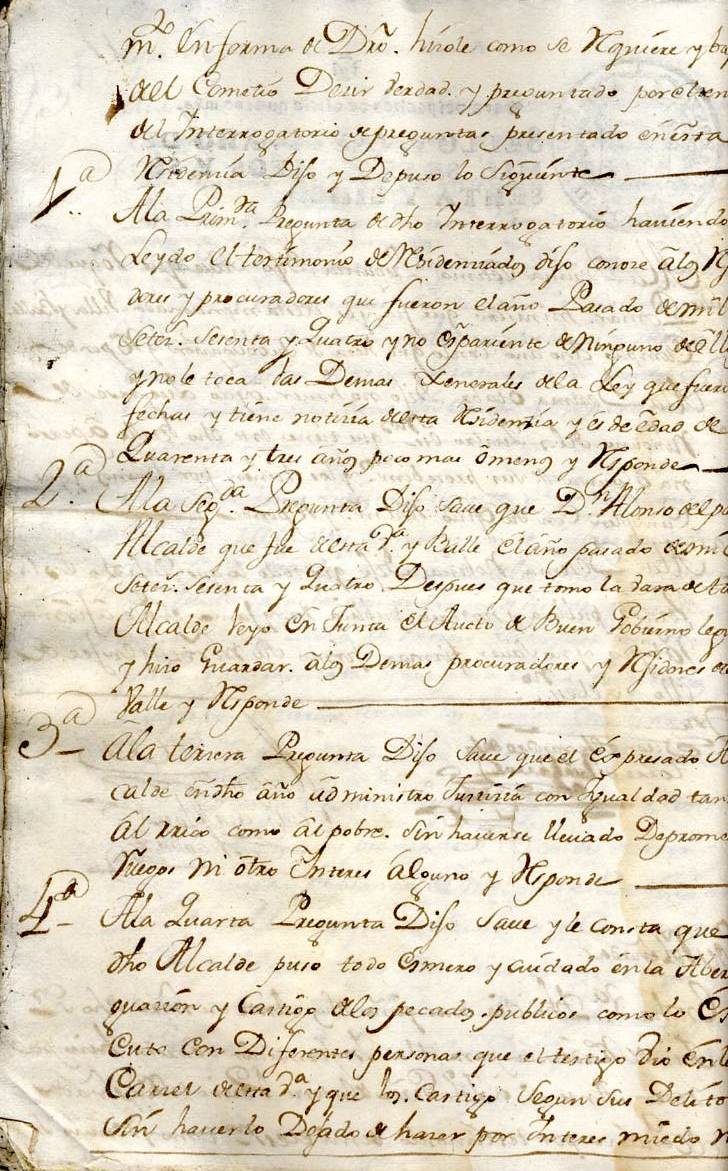 m.º En forma de Dro. hizole como se Requiere y bajo
del Cometio Dezir Verdad. y preguntado por el ten
del Interrogatorio de preguntas presentado en esta
Residencia Dijo y Depuso lo Siguiente
1.ª A la Prim.ra Pregunta de dho Interrogatorio haviendo
Leydo el testimonio de Residenciados dijo conoze â los R
dores y procuradores que fueron el año Pasado de mil
Seter.s Sesenta y Quatro y no es pariente de Ninguno de ell
y no le toca las Demas Xenerales de la Ley que fuero
fechas y tiene noticia desta Residencia y es de edad de
Quarenta y tres años poco mas ô menos y Responde
2.ª A la Seg.da Pregunta Dijo Save que D.n Alonso del
Alcalde que fue desta d.ª y Valle el año pasado de mil
Seter.s Sesenta y Quatro Despues que tomo la vara de tal
Alcalde Leyo En Junta el Aucto de Buen Gobierno
y hizo Guardar â los Demas procuradores y Rejidores de
Valle y Responde
3.ª â la terzera Pregunta Dijo Save que el Expresado Al
calde en dho año administro Justizia con Igualdad tan
al rrico como al pobre. Sin haverse llevado De prome
Ruegos Ni otro Interes Alguno y Responde
4.ª A la Quarta Pregunta Dijo Save y le consta que
dho Alcalde puso todo Esmero y cuidado en la Aber
guazion y Castigo de los pecados publicos como lo Ex
cuto con Diferentes personas que el testigo Vio en la
Carzel desta d.ª y que los Castigo Segun Sus Delito
Sin haverlo Dejado de hazer por Interes miedo n